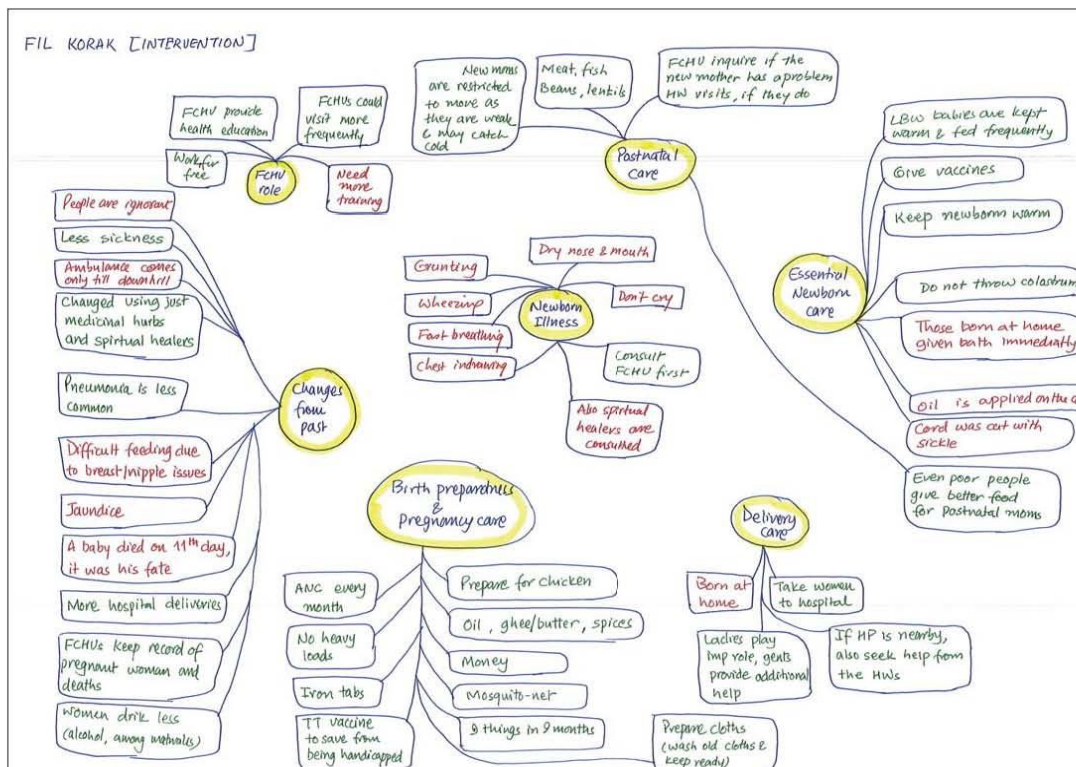 FIL KORAK [INTERVENTION]
FCHV provide
health education
FCHVs could
visit more
frequently
Work for
free
FCHV
role
Need
more
training
New moms
are restricted
to move as
they are weak
& may catch
cold
Meat, fish
Beans, lentils
FCHV inquire if the
new mother has a problem
HW visits, if they do
Postnatal
care
LBW babies are kept
warm & fed frequently
Give vaccines
Keep newborn warm
Essential
Newborn
care
Do not throw colostrum
Those born at home
given bath immediately
Oil is applied on the c
Cord was cut with
sickle
Even poor people
give better food
for postnatal moms
People are ignorant
Less sickness
Ambulance comes
only till downhill
Changed using just
medicinal hurbs
and spirtual healers
Pneumonia is less
common
Changes
from
past
Difficult feeding due
to breast/nipple issues
Jaundice
A baby died on 11th day,
it was his fate
More hospital deliveries
FCHVs keep record of
pregnant woman and
deaths
Women drik less
(alcohol, among matwalis)
Grunting
Wheezing
Fast breathing
Chest indrawing
Dry nose & mouth
Don't cry
Newborn
Illness
Consult
FCHV first
Also spirtual
healers are
consulted
Birth prepardness
&
Pregnancy care
ANC every
month
No heavy
loads
Iron tabs
TT vaccine
to save from
being handicapped
Prepare for chicken
Oil, ghee/butter, spices
Money
Mosquito-net
9 things in 9 months
Prepare cloths
(wash old cloths &
keep ready)
Delivery
care
Born at
home
Take women
to hospital
Ladies play
imp role, gents
provide additional
help
If HP is nearby,
also seek help from
the HWs